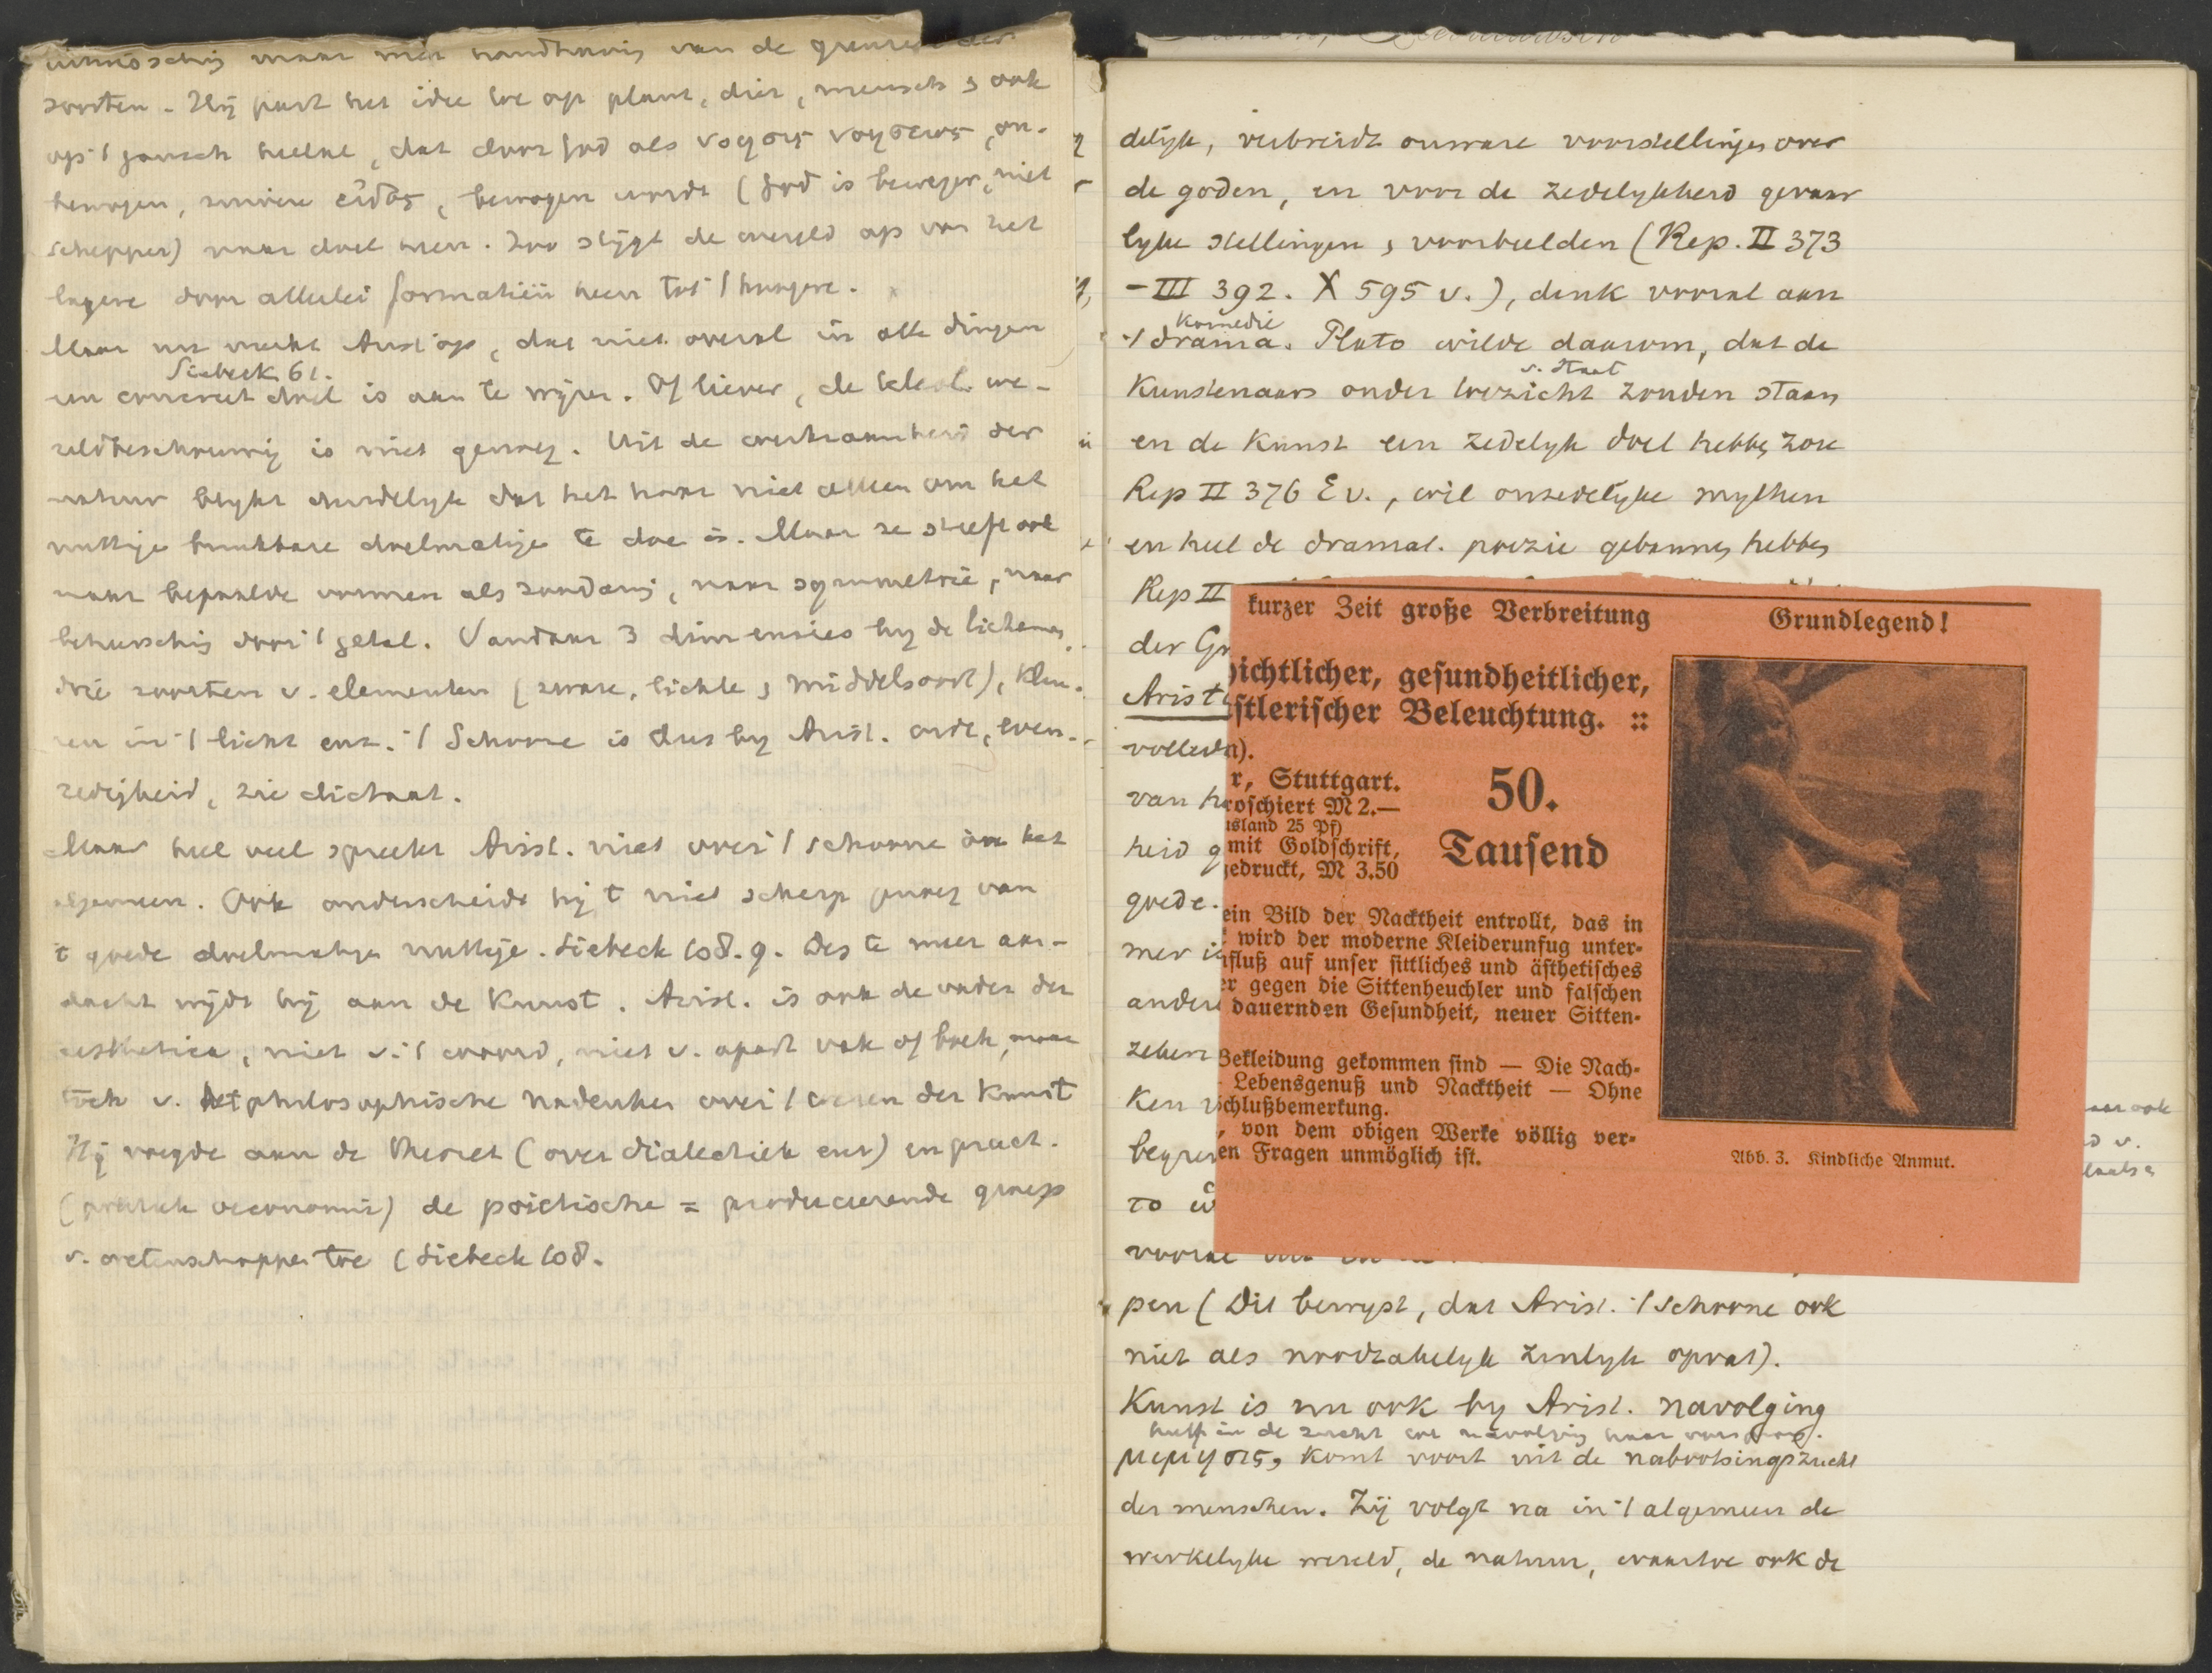 soorten. Hij past het idee toe op plant, dier, mensch & ook
op 't gansch heelal, dat door God als νοησις νοησεως, on-
bewogen, zuivere εἶδος, bewogen wordt (God is beweger, niet
schepper) naar doel heen. Zoo stijgt de wereld op van het
lagere door allerlei formatiën heen tot 't hoogere.
Maar nu merkt Arist. op, dat niet overal in alle dingen
Siebeck 61.
een concreet doel is aan te wijzen. Of liever, de we-
reldbeschouwing is niet genoeg. Uit de werkzaamheid der
natuur blijkt duidelijk dat het haar niet alleen om het
nuttige bruikbare doelmatige te doe is. Maar ze streeft ook
naar bepaalde vormen als zoodanig, naar symmetrie, naar
beheersching door 't getal. Vandaar 3 dimensies by de lichamen,
drie soorten v. elementen (zware, lichte & middelsoort), kleu-
ren in 't licht enz. 't Schoone is dus by Arist. orde, even-
redigheid, zie dictaat.
Maar heel veel spreekt Arist. niet over 't schoone in het
algemeen. Ook onderscheidt hij 't niet scherp genoeg van
't goede doelmatige nuttige. Siebeck 108.9. Des te meer aan-
dacht wijdt hij aan de Kunst. Arist. is ook de vader der
aesthetica, niet v. 't woord, niet v. apart vak of boek, maar
toch v. het philosophische nadenken over 't wezen der Kunst
Hij voegde aan de theoret (over dialectiek enz) en pract.
(politiek oeconomie) de poietische = produceerende groep
v. wetenschappen toe (Siebeck 108.
delijk, verbreidt onware voorstellingen over
de goden, en voor de zedelykheid gevaar
lyke stellingen & voorbeelden (Rep. II 373
– III 392. X 595 v.), denk vooral aan
komedie
't drama. Plato wilde daarom, dat de
v. Staat
Kunstenaars onder toezicht zouden staan
en de Kunst een zedelyk doel hebben zou
Rep II 376 E v., wil onzedelyke mythen
en heel de dramat. poezie gebannen hebben
Rep II
der Gr
Arist
volled
van h
heid g
goede.
mer i
andere
zeben
Ken
begre
το
vooral
pen (Dit bewyst, dat Arist. 't schoone ook
niet als noodzakelyk zinlyk opvat).
Kunst is nu ook by Arist. navolging
heeft in de zucht tot navolging haar oorsprong.
μιμησις, komt voort uit de nabootsingszucht
der menschen. Zij volgt na in 't algemeen de
werkelyke wereld, de natuur, waartoe ook de
kurzer Zeit große Verbreitung
Grundlegend!
ichtlicher, gesundheitlicher,
stlerischer Beleuchtung. ::
n).
r, Stuttgart.
roschiert M 2.—
usland 25 Pf)
mit Goldschrift,
edruckt, M 3.50
50.
Tausend
ein Bild der Nacktheit entrollt, das in
wird der moderne Kleiderunfug unter-
fluß auf unser sittliches und ästhetisches
er gegen die Sittenheuchler und falschen
dauernden Gesundheit, neuer Sitten-
Bekleidung gekommen sind — Die Nach-
Lebensgenuß und Nacktheit — Ohne
chlußbemerkung.
, von dem obigen Werke völlig ver-
en Fragen unmöglich ist.
Abb. 3. Kindliche Anmut.